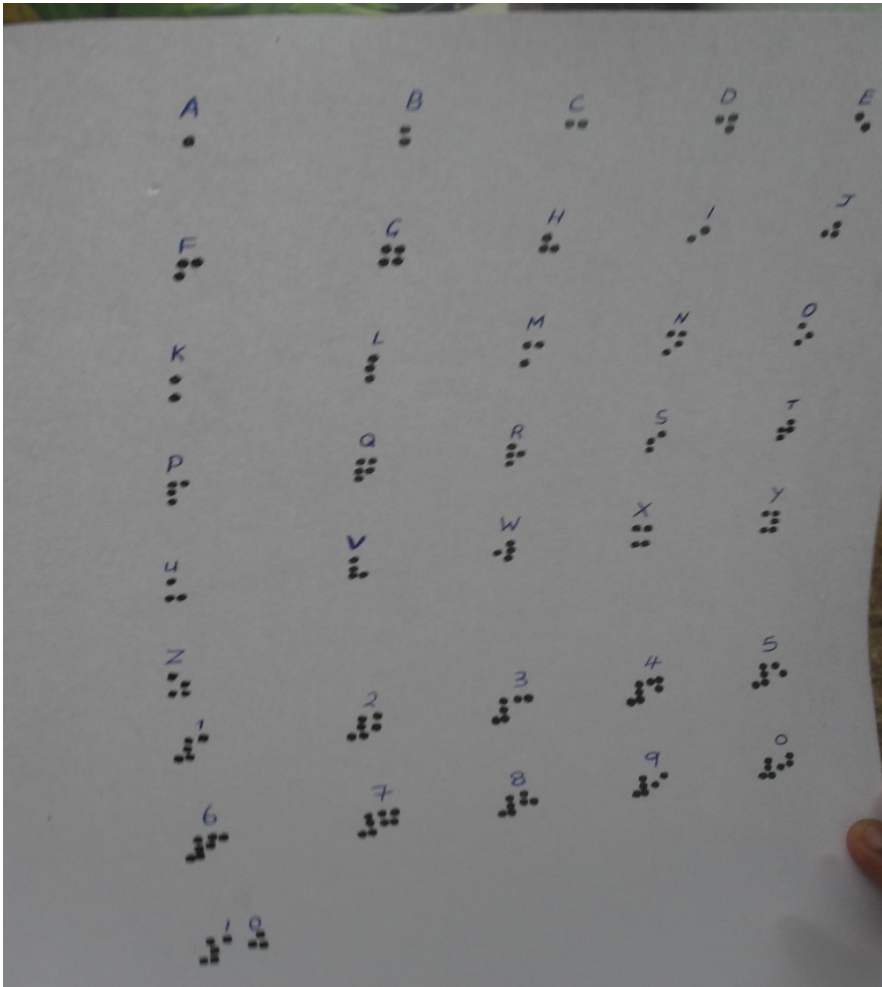 A B C D E
F G H I J
K L M N O
P Q R S T
U V W X Y
Z
1 2 3 4 5
6 7 8 9 0
1 0